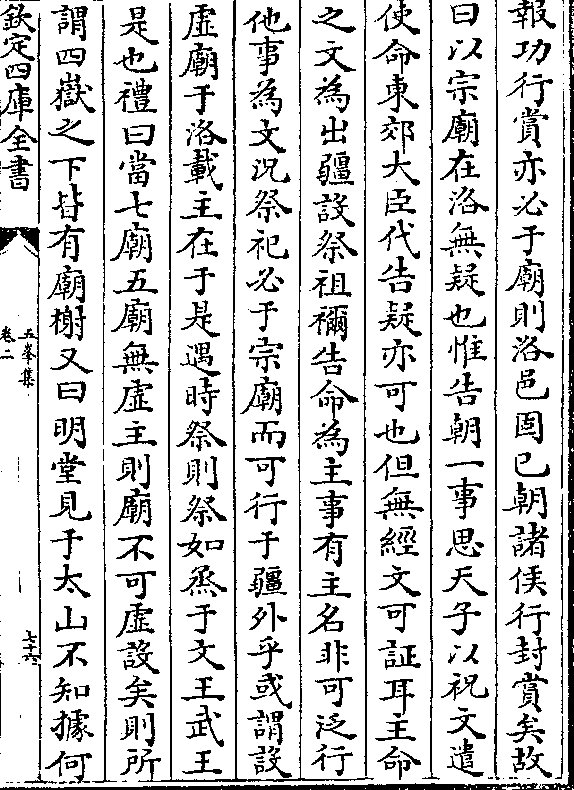 報功行賞亦必于廟則洛邑固已朝諸侯行封賞矣故
曰以宗廟在洛無疑也惟告朝一事思天子以祝文遣
使命東郊大臣代告疑亦可也但無經文可証耳主命
之文為出疆設祭祖禰告命為主事有主名非可泛行
他事為文況祭祀必于宗廟而可行于疆外乎或謂設
虛廟于洛載主在于是遇時祭則祭如烝于文王武王
是也禮曰當七廟五廟無虛主則廟不可虛設矣則所
謂四嶽之下皆有廟榭又曰明堂見于太山不知據何
欽定四庫全書
五峯集
卷二
七十六